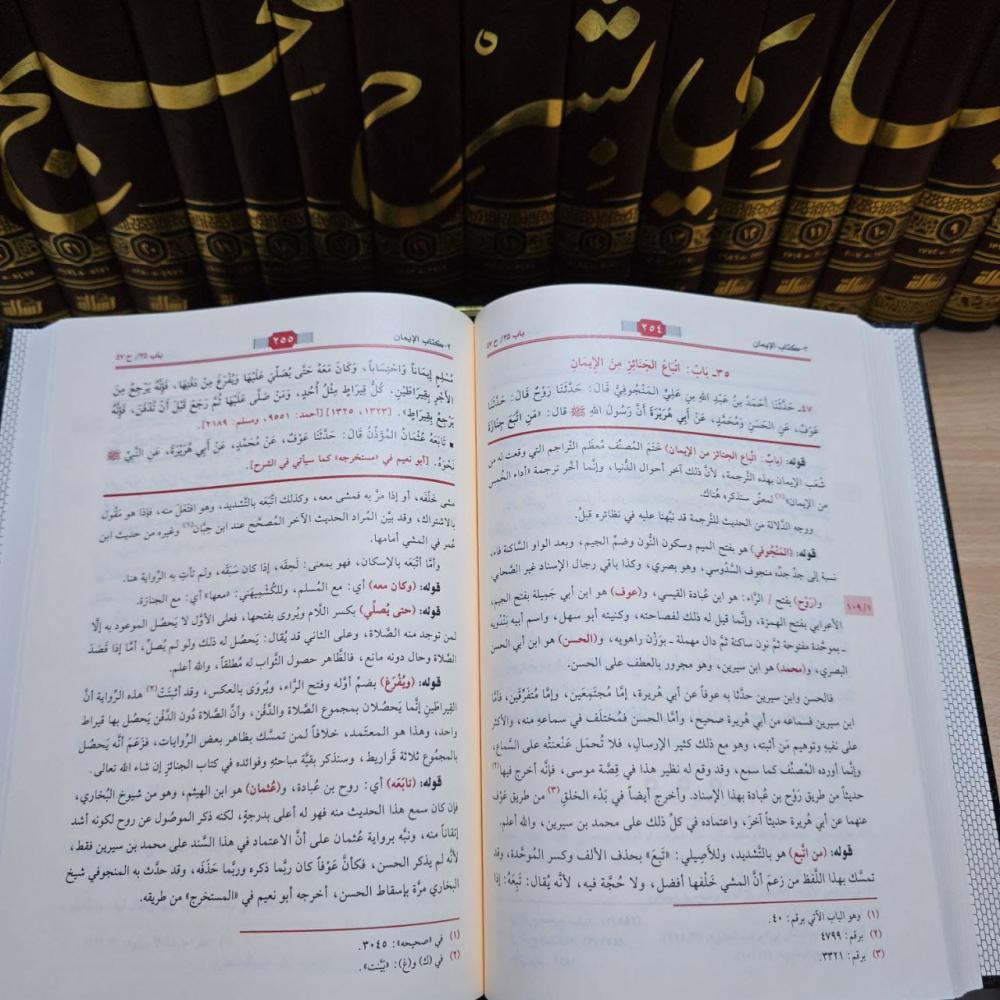 ـاري بشرح صحيح
٢- كتاب الإيمان
٢٥٤
باب ٣٥/ ح ٤٧
٣٥- بَابٌ: اتِّبَاعُ الجَنَائِزِ مِنَ الإِيمَانِ
٤٧- حَدَّثَنَا أَحْمَدُ بنُ عَبْدِ اللهِ بنِ عَلِيٍّ المَنْجُوفِيُّ قَالَ: حَدَّثَنَا رَوْحٌ قَالَ: حَدَّثَنَا
عَوْفٌ، عَنِ الحَسَنِ وَمُحَمَّدٍ، عَنْ أَبِي هُرَيْرَةَ أَنَّ رَسُولَ اللهِ ﷺ قَالَ: «مَنِ اتَّبَعَ جِنَازَةَ
قوله: (بابٌ: اتِّباع الجنائز من الإيمان) خَتَمَ المُصنِّف مُعظَم التراجم التي وقعت له من
شُعَب الإيمان بهذه التَّرجمة، لأنَّ ذلك آخر أحوال الدُّنيا، وإنَّما أخَّر ترجمة «أداء الخُمس
من الإيمان»(١) لمعنًى سنذكره هُناك.
ووجه الدَّلالة من الحديث للتَّرجمة قد نبَّهنا عليه في نظائره قبلُ.
قوله: (المَنْجُوفي) هو بفتح الميم وسكون النُّون وضمِّ الجيم، وبعد الواو السَّاكنة فاء،
نسبة إلى جدِّ جدِّه منجوف السَّدُوسي، وهو بصري، وكذا باقي رجال الإسناد غير الصَّحابي
و(رَوْح) بفتح / الرَّاء: هو ابن عُبادة القيسي، و(عوف) هو ابن أبي جَمِيلة بفتح الجيم،
١٠٩/١
الأعرابي بفتح الهمزة، وإنَّما قيل له ذلك لفصاحته، وكنيته أبو سهل، واسم أبيه بَنْدُويه
- بموحَّدة مفتوحة ثمَّ نون ساكنة ثمَّ دال مهملة - بوَزْن راهويه، و(الحسن) هو ابن أبي الحسن
البصري، و(محمد) هو ابن سيرين، وهو مجرور بالعطف على الحسن.
فالحسن وابن سيرين حدَّثا به عوفاً عن أبي هُريرة، إمَّا مُجتمِعَين، وإمَّا مُتفرِّقَين، فأمَّا
ابن سيرين فسماعه من أبي هُريرة صحيح، وأمَّا الحسن فمُختلَف في سماعه منه، والأكثر
على نفيه وتوهيم مَن أثبته، وهو مع ذلك كثير الإرسال، فلا تُحمَل عَنْعنتُه على السَّماع،
وإنَّما أورده المُصنِّف كما سمع، وقد وقع له نظير هذا في قِصَّة موسى، فإنَّه أخرج فيها(٢)
حديثاً من طريق رَوْح بن عُبادة بهذا الإسناد. وأخرج أيضاً في بَدْء الخلق(٣) من طريق عَوْف
عنهما عن أبي هُريرة حديثاً آخرَ، واعتماده في كلِّ ذلك على محمد بن سيرين، والله أعلم.
قوله: (من اتَّبع) هو بالتَّشديد، وللأَصِيلي: «تَبِعَ» بحذف الألف وكسر المُوحَّدة، وقد
تمسك بهذا اللَّفظ من زعمَ أنَّ المشي خَلْفها أفضل، ولا حُجَّة فيه، لأنَّه يُقال: تَبِعَهُ: إذا
(١) وهو الباب الآتي برقم: ٤٠.
(٢) برقم: ٤٧٩٩
(٣) برقم: ٣٣٢١.
٢- كتاب الإيمان
٢٥٥
باب ٣٥/ ح ٤٧
مُسْلِمٍ إِيمَاناً وَاحْتِسَاباً، وَكَانَ مَعَهُ حَتَّى يُصَلِّيَ عَلَيْهَا وَيُفْرَغَ مِنْ دَفْنِهَا، فَإِنَّهُ يَرْجِعُ مِنَ
الأَجْرِ بِقِيرَاطَيْنِ، كُلُّ قِيرَاطٍ مِثْلُ أُحُدٍ، وَمَنْ صَلَّى عَلَيْهَا ثُمَّ رَجَعَ قَبْلَ أَنْ تُدْفَنَ، فَإِنَّهُ
يَرْجِعُ بِقِيرَاطٍ». [١٣٢٣، ١٣٢٥] [أحمد: ٩٥٥١، ومسلم: ٢١٨٩].
■ تَابَعَهُ عُثْمَانُ المُؤَذِّنُ قَالَ: حَدَّثَنَا عَوْفٌ، عَنْ مُحَمَّدٍ، عَنْ أَبِي هُرَيْرَةَ، عَنِ النَّبِيِّ ﷺ
نَحْوَهُ. [أبو نعيم في «مستخرجه» كما سيأتي في الشرح].
مشى خَلْفَه، أو إذا مرَّ به فمشى معه، وكذلك اتَّبَعَه بالتَّشديد، وهو افتَعَلَ منه، فإذا هو مَقُول
بالاشتراك، وقد بيَّن المراد الحديث الآخر المُصحَّح عند ابن حِبَّان(١) وغيره من حديث ابن
عُمر في المشي أمامها.
وأمَّا أتْبَعَه بالإسكان، فهو بمعنى: لَحِقَه، إذا كان سَبَقَه، ولم تأتِ به الرِّواية هنا.
قوله: (وكان معه) أي: مع المُسلم، وللكُشْمِيهَني: «معها» أي: مع الجنازة.
قوله: (حتى يُصلِّي) بكسر اللَّام ويُروى بفتحها، فعلى الأوَّل لا يَحصُل الموعود به إلَّا
لمن توجد منه الصَّلاة، وعلى الثاني قد يُقال: يَحصُل له ذلك ولو لم يُصلِّ، أمَّا إذا قَصَدَ
الصَّلاة وحال دونه مانع، فالظَّاهر حصول الثَّواب له مُطلقاً، والله أعلم.
قوله: (ويُفْرَغ) بضمِّ أوَّله وفتح الرَّاء، ويُروَى بالعكس، وقد أثبتَتْ(٢) هذه الرِّواية أنَّ
القِيراطَين إنَّما يَحصُلان بمجموع الصَّلاة والدَّفْن، وأنَّ الصَّلاة دُون الدَّفْن يَحصُل بها قيراط
واحد، وهذا هو المعتمَد، خلافاً لمن تمسك بظاهر بعض الرِّوايات، فزَعَمَ أنَّه يَحصُل
بالمجموع ثلاثة قَراريط، وسنذكر بقيَّة مباحثه وفوائده في كتاب الجنائز إن شاء الله تعالى.
قوله: (تابَعَه) أي: روح بن عُبادة، و(عُثمان) هو ابن الهيثم، وهو من شيوخ البُخاري،
فإن كان سمع هذا الحديث منه فهو له أعلى بدرجةٍ، لكنه ذكر الموصُول عن روح لكونه أشد
إتقاناً منه، ونبَّه برواية عُثمان على أنَّ الاعتماد في هذا السَّند على محمد بن سيرين فقط،
لأنَّه لم يذكر الحسن، فكأنَّ عَوْفاً كان ربَّما ذكره وربَّما حَذَفَه، وقد حدَّث به المنجوفي شيخ
البخاري مرَّة بإسقاط الحسن، أخرجه أبو نعيم في «المستخرج» من طريقه.
(١) في «صحيحه»: ٣٠٤٥.
(٢) في (ك) و(غ): «بَيَّنت».